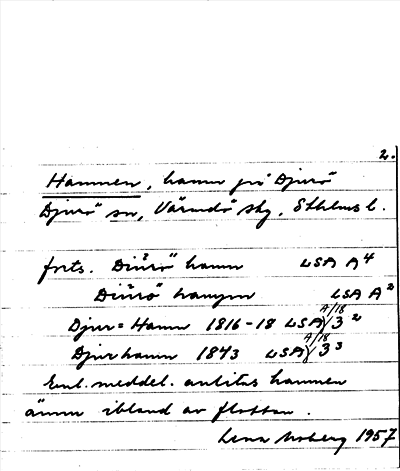 2.
Hamnen, hamn på Djurö
Djurö sn, Värmdö skg, Sthlms l.
forts. Diürö hamn LSA A4
Diürö hampn LSA A2
Djur=Hamn 1816-18 LSA A/18 3 2
Djurhamn 1843 LSA A/18 3 3
Enl. meddel. anlitas hamnen
ännu ibland av flottan.
Lena Moberg 1957